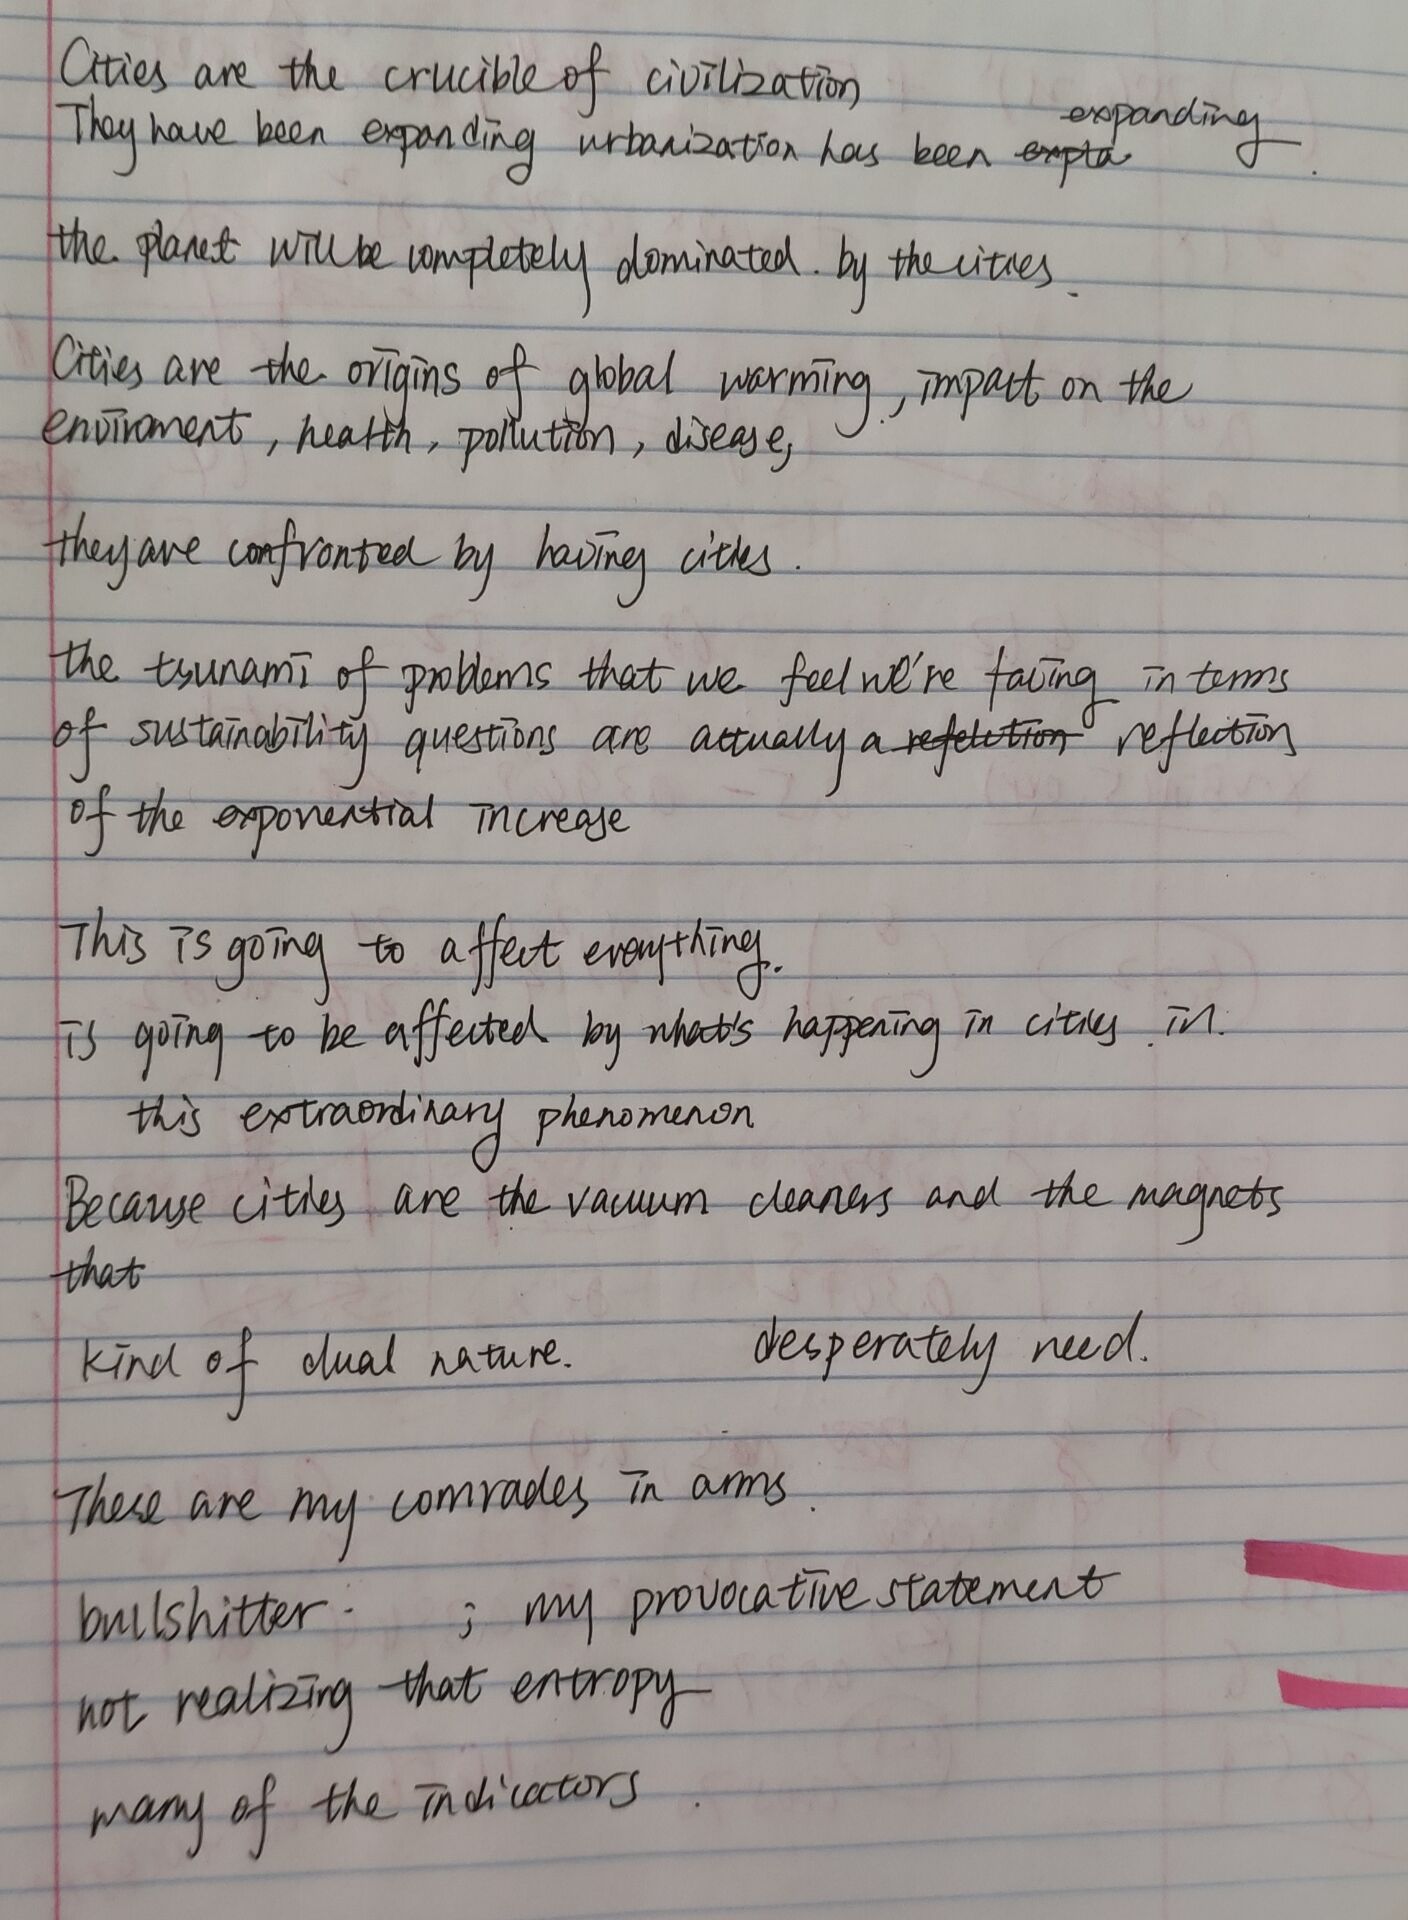 Cities are the crucible of civilization
expanding
They have been expanding urbanization has been expta
the planet will be completely dominated. by the cities.
Cities are the origins of global warming, impact on the
enviroment, health, pollution, disease,
they are confronted by having cities.
the tsunami of problems that we feel we're facing in terms
of sustainability questions are actually a refelction reflection
of the exponential increase
This is going to affect everything.
is going to be affected by what's happening in cities in.
this extraordinary phenomenon
Because cities are the vacuum cleaners and the magnets
that
kind of dual nature. desperately need.
These are my comrades in arms.
bullshitter. ; my provocative statement
not realizing that entropy
many of the indicators.